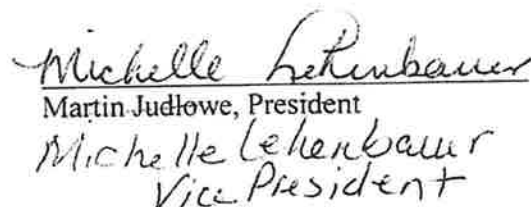 Michelle Lehenbauer
Martin Judlowe, President
Michelle Lehenbauer
Vice President